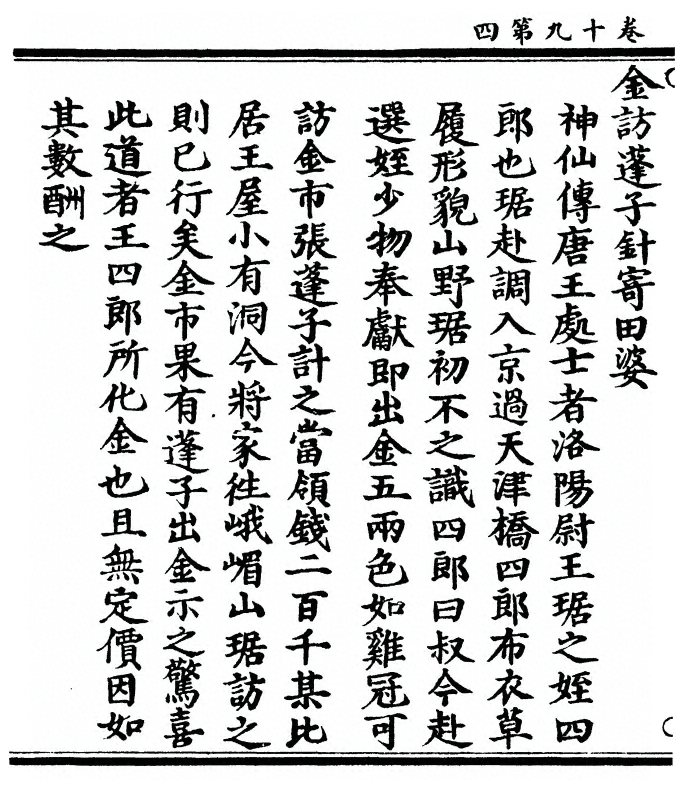 卷十九第四
金訪蓬子針寄田婆
神仙傳唐王處士者洛陽尉王琚之姪四
郎也琚赴調入京過天津橋四郎布衣草
履形貌山野琚初不之識四郎曰叔今赴
選姪少物奉獻即出金五兩色如雞冠可
訪金市張蓬子計之當領錢二百千某比
居王屋小有洞今將家徃峨嵋山琚訪之
則已行矣金市果有蓬子出金示之驚喜
此道者王四郎所化金也且無定價因如
其數酬之